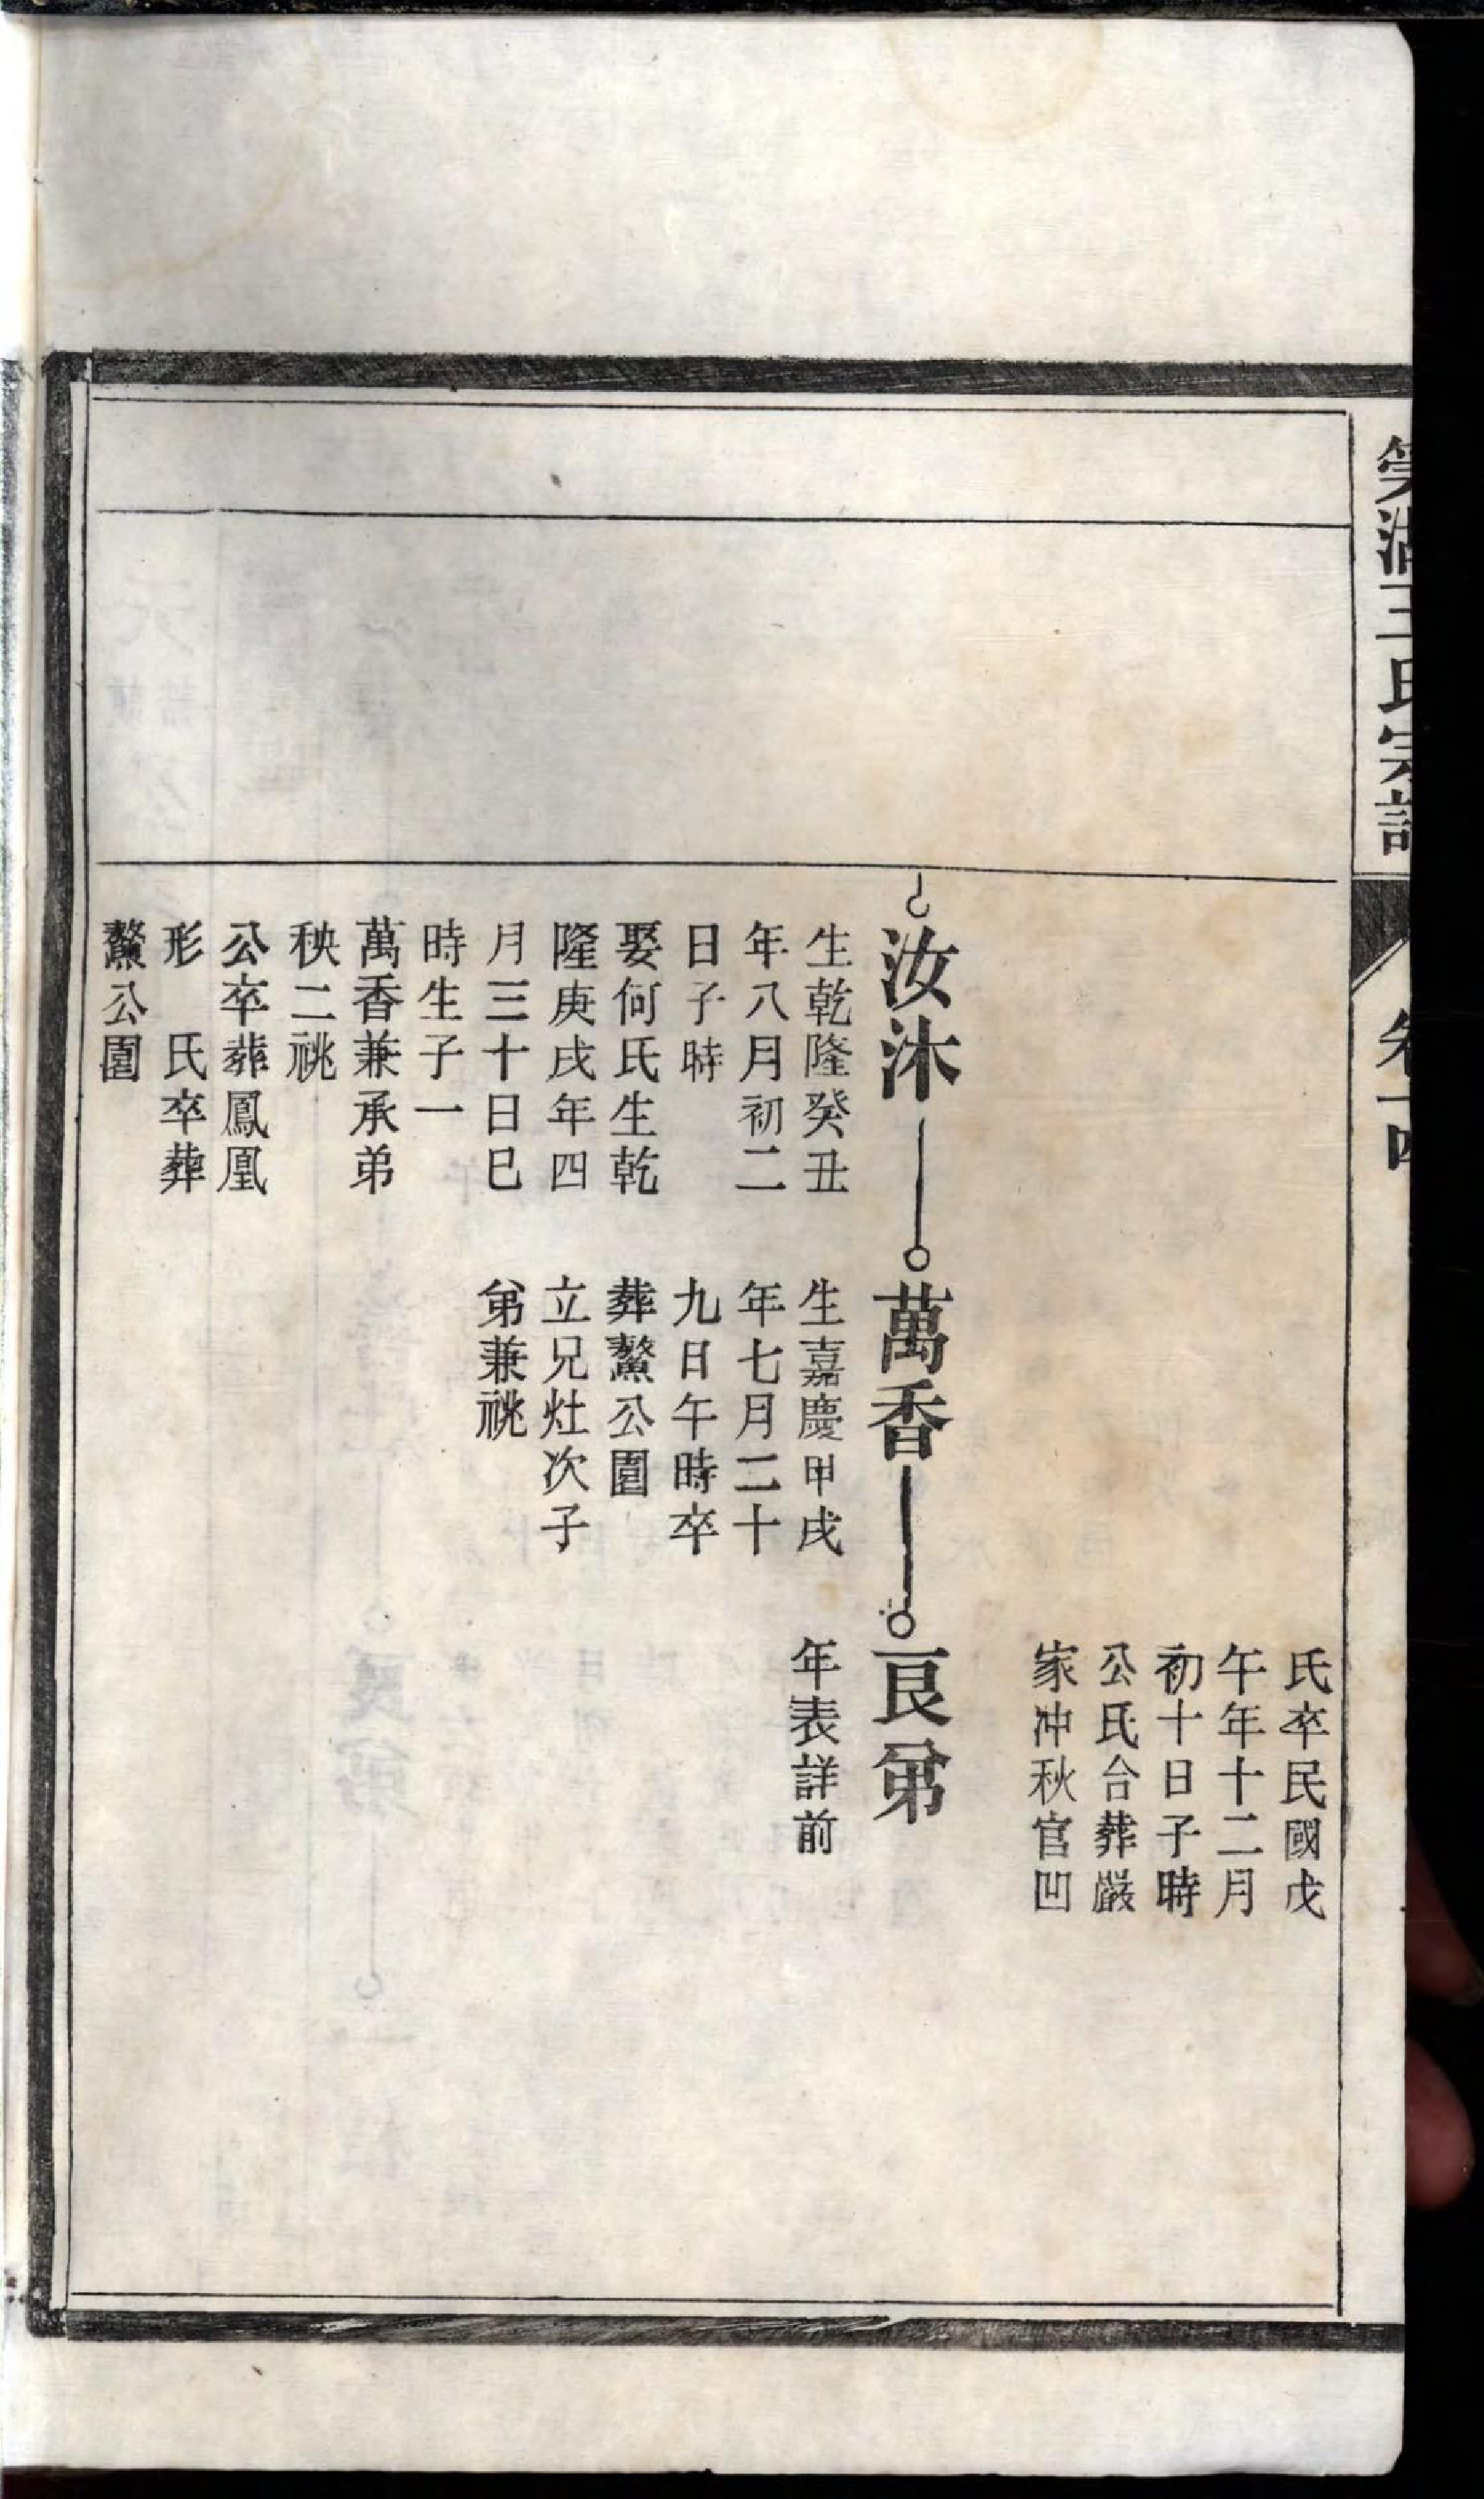 湖王氏宗譜
卷十四
氏卒民國戊
午年十二月
初十日子時
公氏合葬嚴
家冲秋官凹
汝沐
生乾隆癸丑
年八月初二
日子時
娶何氏生乾
隆庚戌年四
月三十日巳
時生子一
萬香兼承弟
秧二祧
公卒葬鳳凰
形　氏卒葬
鰲公園
萬香
生嘉慶甲戌
年七月二十
九日午時卒
葬鰲公園
立兄灶次子
弟兼祧
良弟
年表詳前